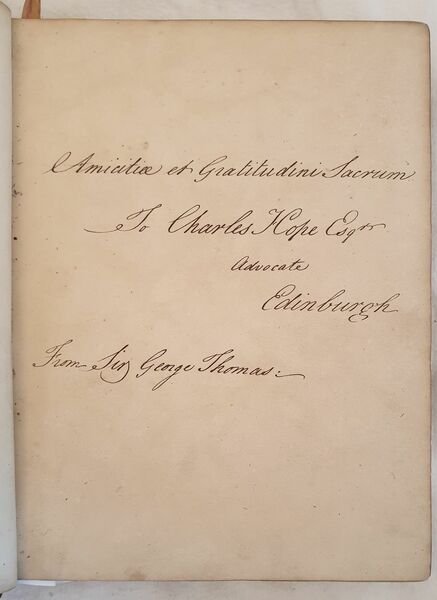 Amicitiæ et Gratitudini Sacrum
To Charles Hope Esqr
Advocate
Edinburgh
From Sir George Thomas